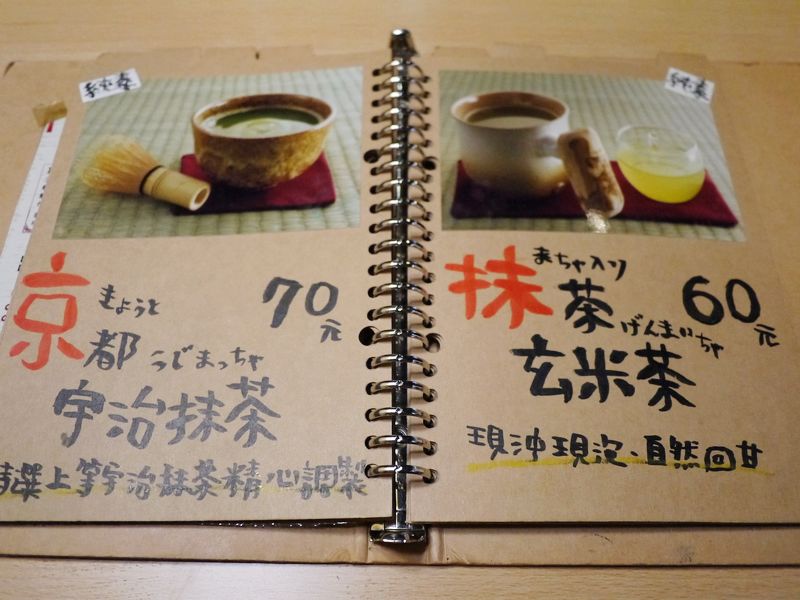 純素
京都
きょうと
70元
うじまっちゃ
宇治抹茶
特選上等宇治抹茶精心調製
純素
抹茶
まちゃ入り
60元
げんまいちゃ
玄米茶
現沖現泡、自然回甘